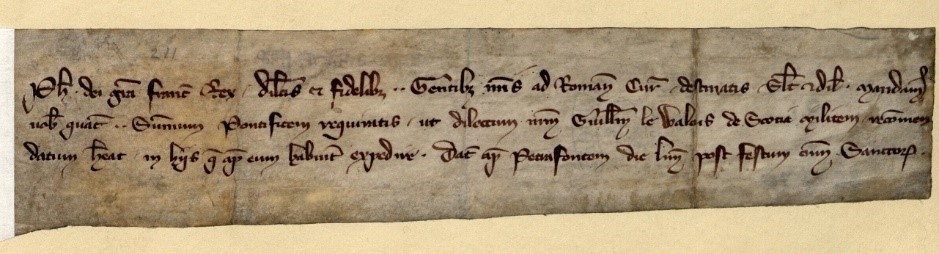 211
Ph. dei gra franc Rex . dilcis et fidelibz .. Gentibz nris ad Romanam Cur . destinatis . Slt et dil . Mandamus
vob quat .. Summum Pontificem requiratis . ut dilectum nrm Guillm le Walois de Scotia militem recomen
datum heat . in hiis q ap eum habuit expedire . Dat ap Petrafontem die lun post festum omnium Sanctor .